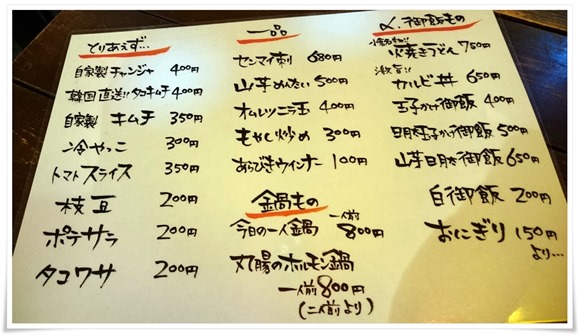 とりあえず...
自家製チャンジャ 400円
韓国直送!!タコキムチ 400円
自家製 キムチ 350円
冷やっこ 300円
トマトスライス 350円
枝豆 200円
ポテサラ 200円
タコワサ 200円
一品
センマイ刺 680円
山芋めんたい 500円
オムレツニラ玉 400円
もやし炒め 300円
あらびきウインナー 100円
鍋もの
今日の一人鍋 一人前 800円
丸腸のホルモン鍋
一人前 800円
(二人前より)
〆、御飯もの
小倉名物!! 焼きうどん 750円
激旨!!
カルビ丼 650円
玉子かけ御飯 400円
明太玉子かけ御飯 500円
山芋明太御飯 650円
白御飯 200円
おにぎり 150円
より...